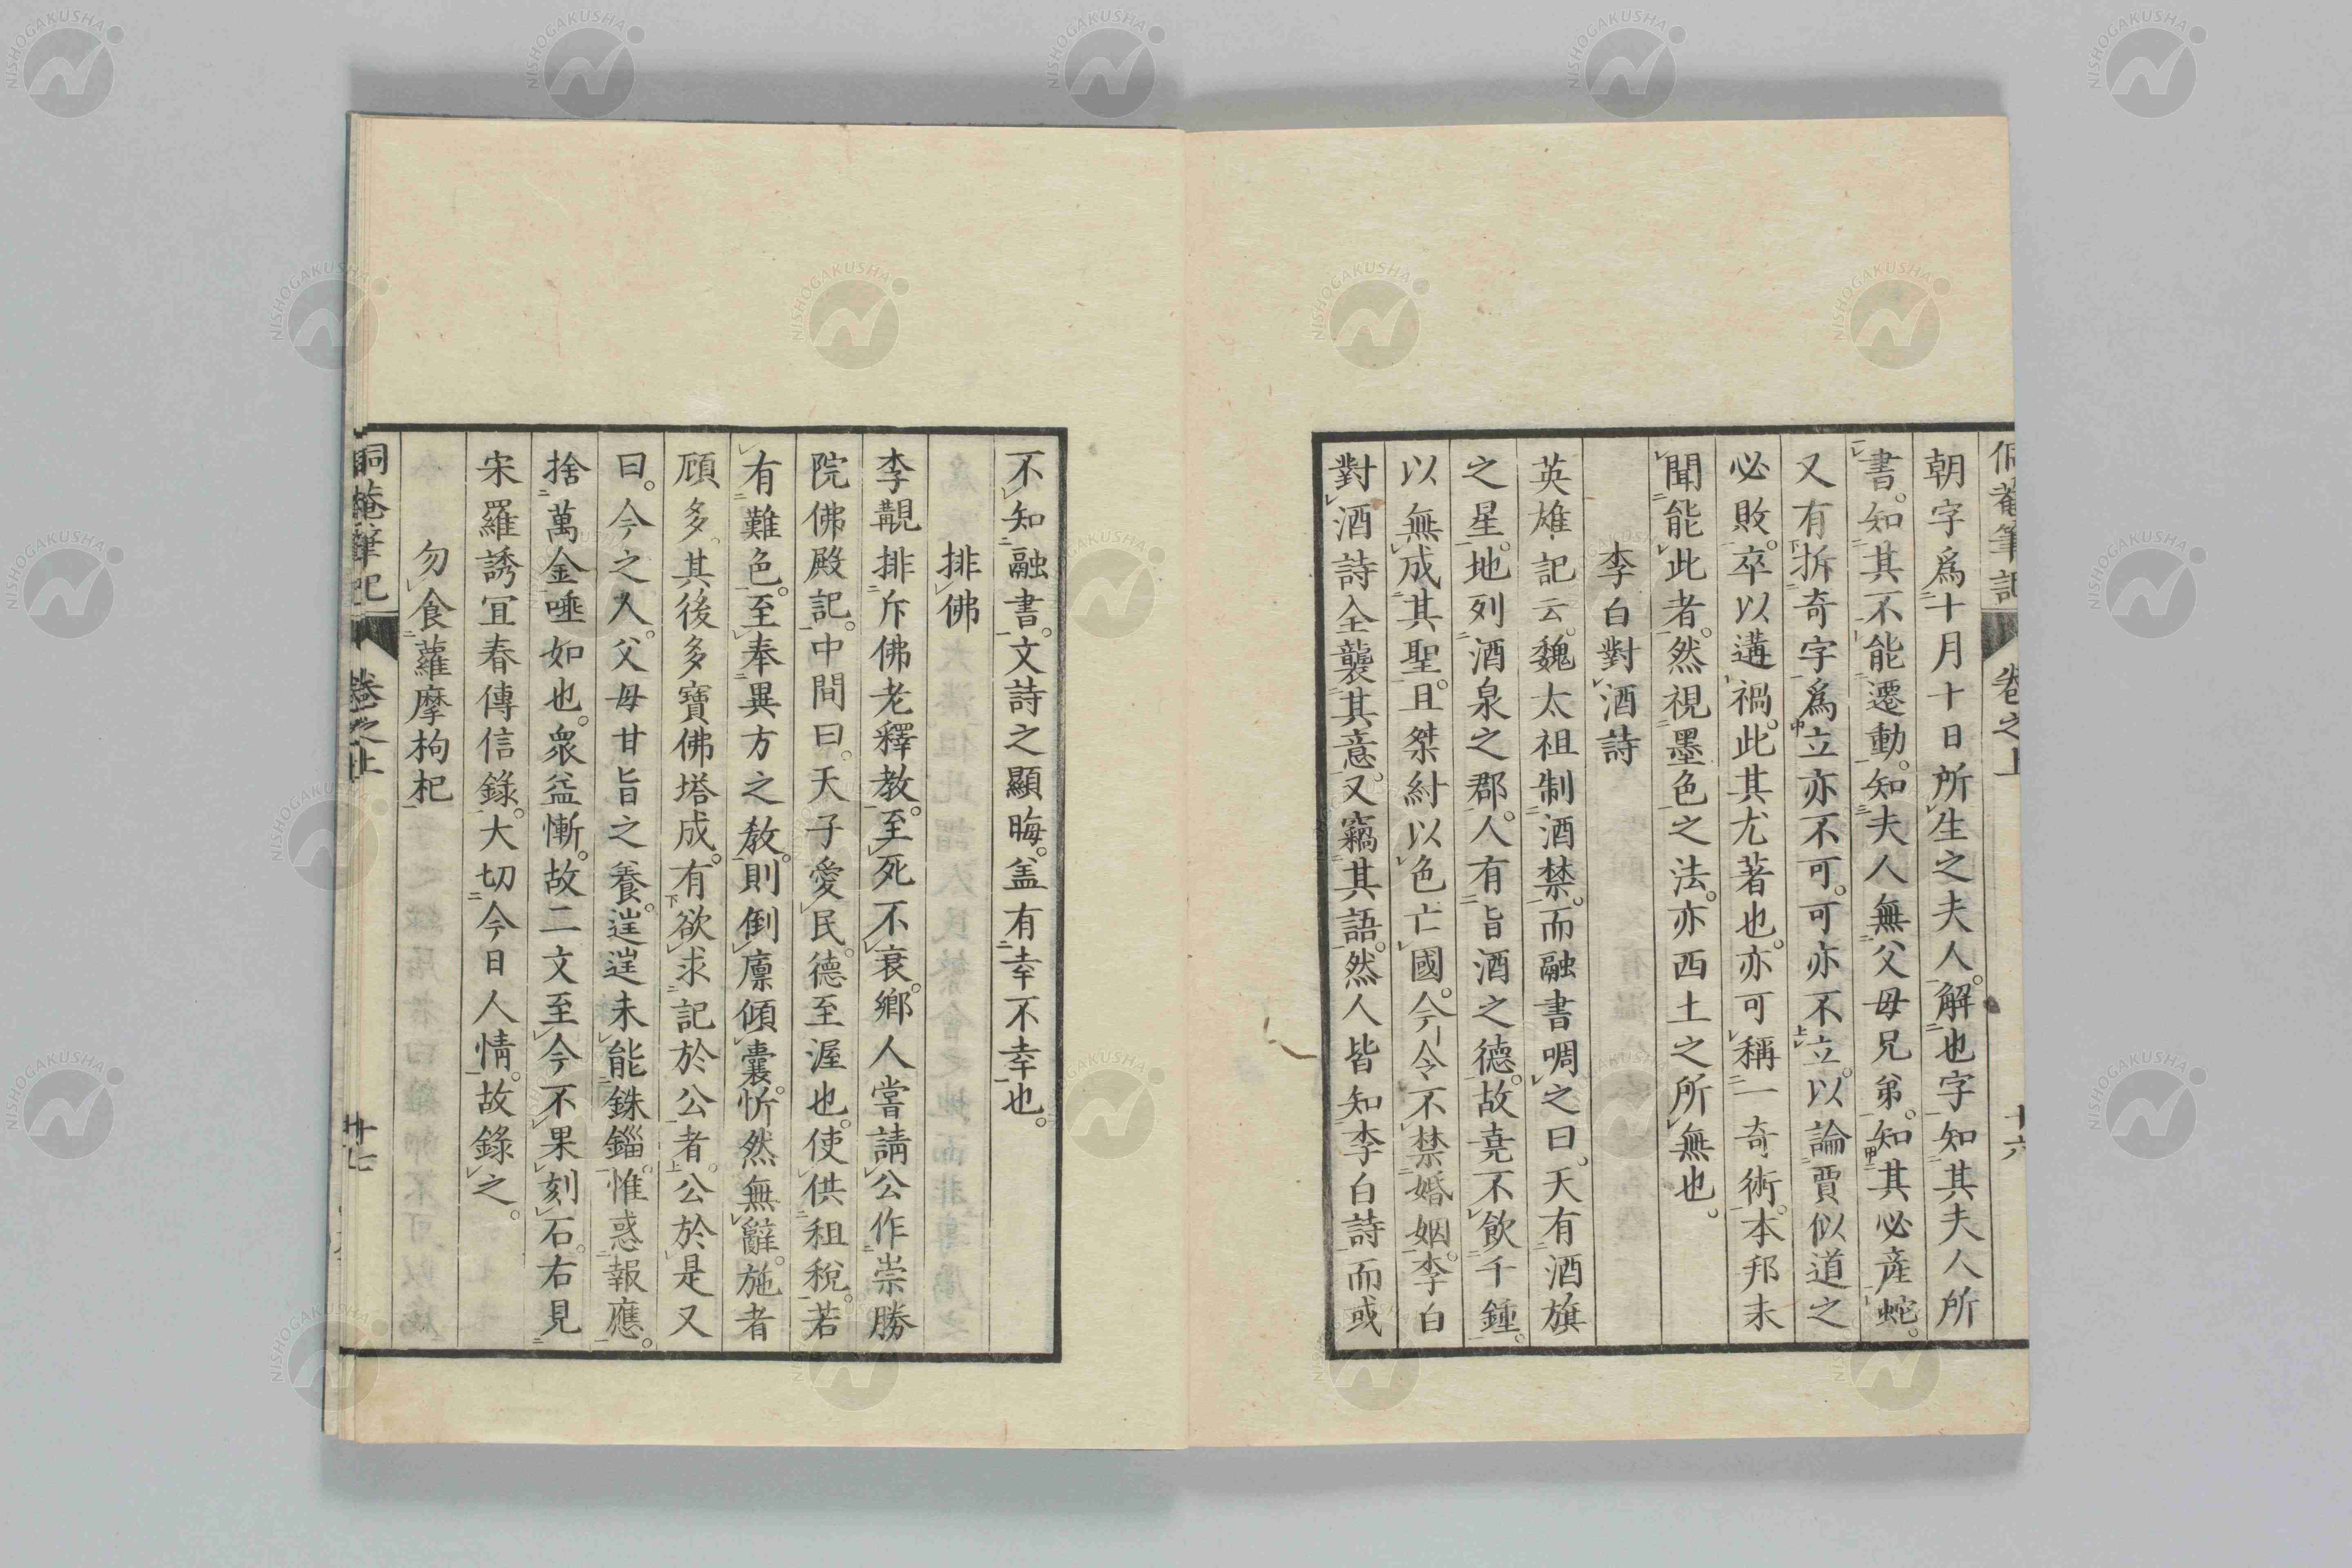 朝字爲十月十日所生之夫人。解也字知其夫人所
書。如其不能遷動。知夫人無父母兄弟。知其必産蛇。
又有拆奇字爲立亦不可。可亦不立。以論賈似道之
必敗。卒以遘禍。此其尤著也。亦可稱一奇術。本邦未
聞能此者。然視墨色之法。亦西土之所無也。
李白對酒詩
英雄記云。魏太祖制酒禁。而融書啁之曰。天有酒旗
之星。地列酒泉之郡。人有旨酒之德。故堯不飲千鍾。
以無成其聖。且桀紂以色亡國。今令不禁婚姻。李白
對酒詩全襲其意。又竊其語。然人皆知李白詩而或
不知融書。文詩之顯晦。盖有幸不幸也。
排佛
李覯排斥佛老釋教。至死不衰。鄉人嘗請公作崇勝
院佛殿記。中間曰。天子愛民。德至渥也。使供租稅。若
有難色。至奉異方之教。則倒廪傾囊。忻然無辭。施者
頎多。其後多寶佛塔成。有欲求記於公者。公於是又
曰。今之人。父母甘旨之養。逞逞未能銖錙。惟惑報應。
捨萬金唾如也。衆益慚。故二文至今不果刻石。右見
宋羅誘宜春傳信錄。大切今日人情。故錄之。
勿食蘿摩枸杞
侗菴筆記 卷之上 十六
侗菴筆記 卷之上 十七
NISHOGAKUSHA